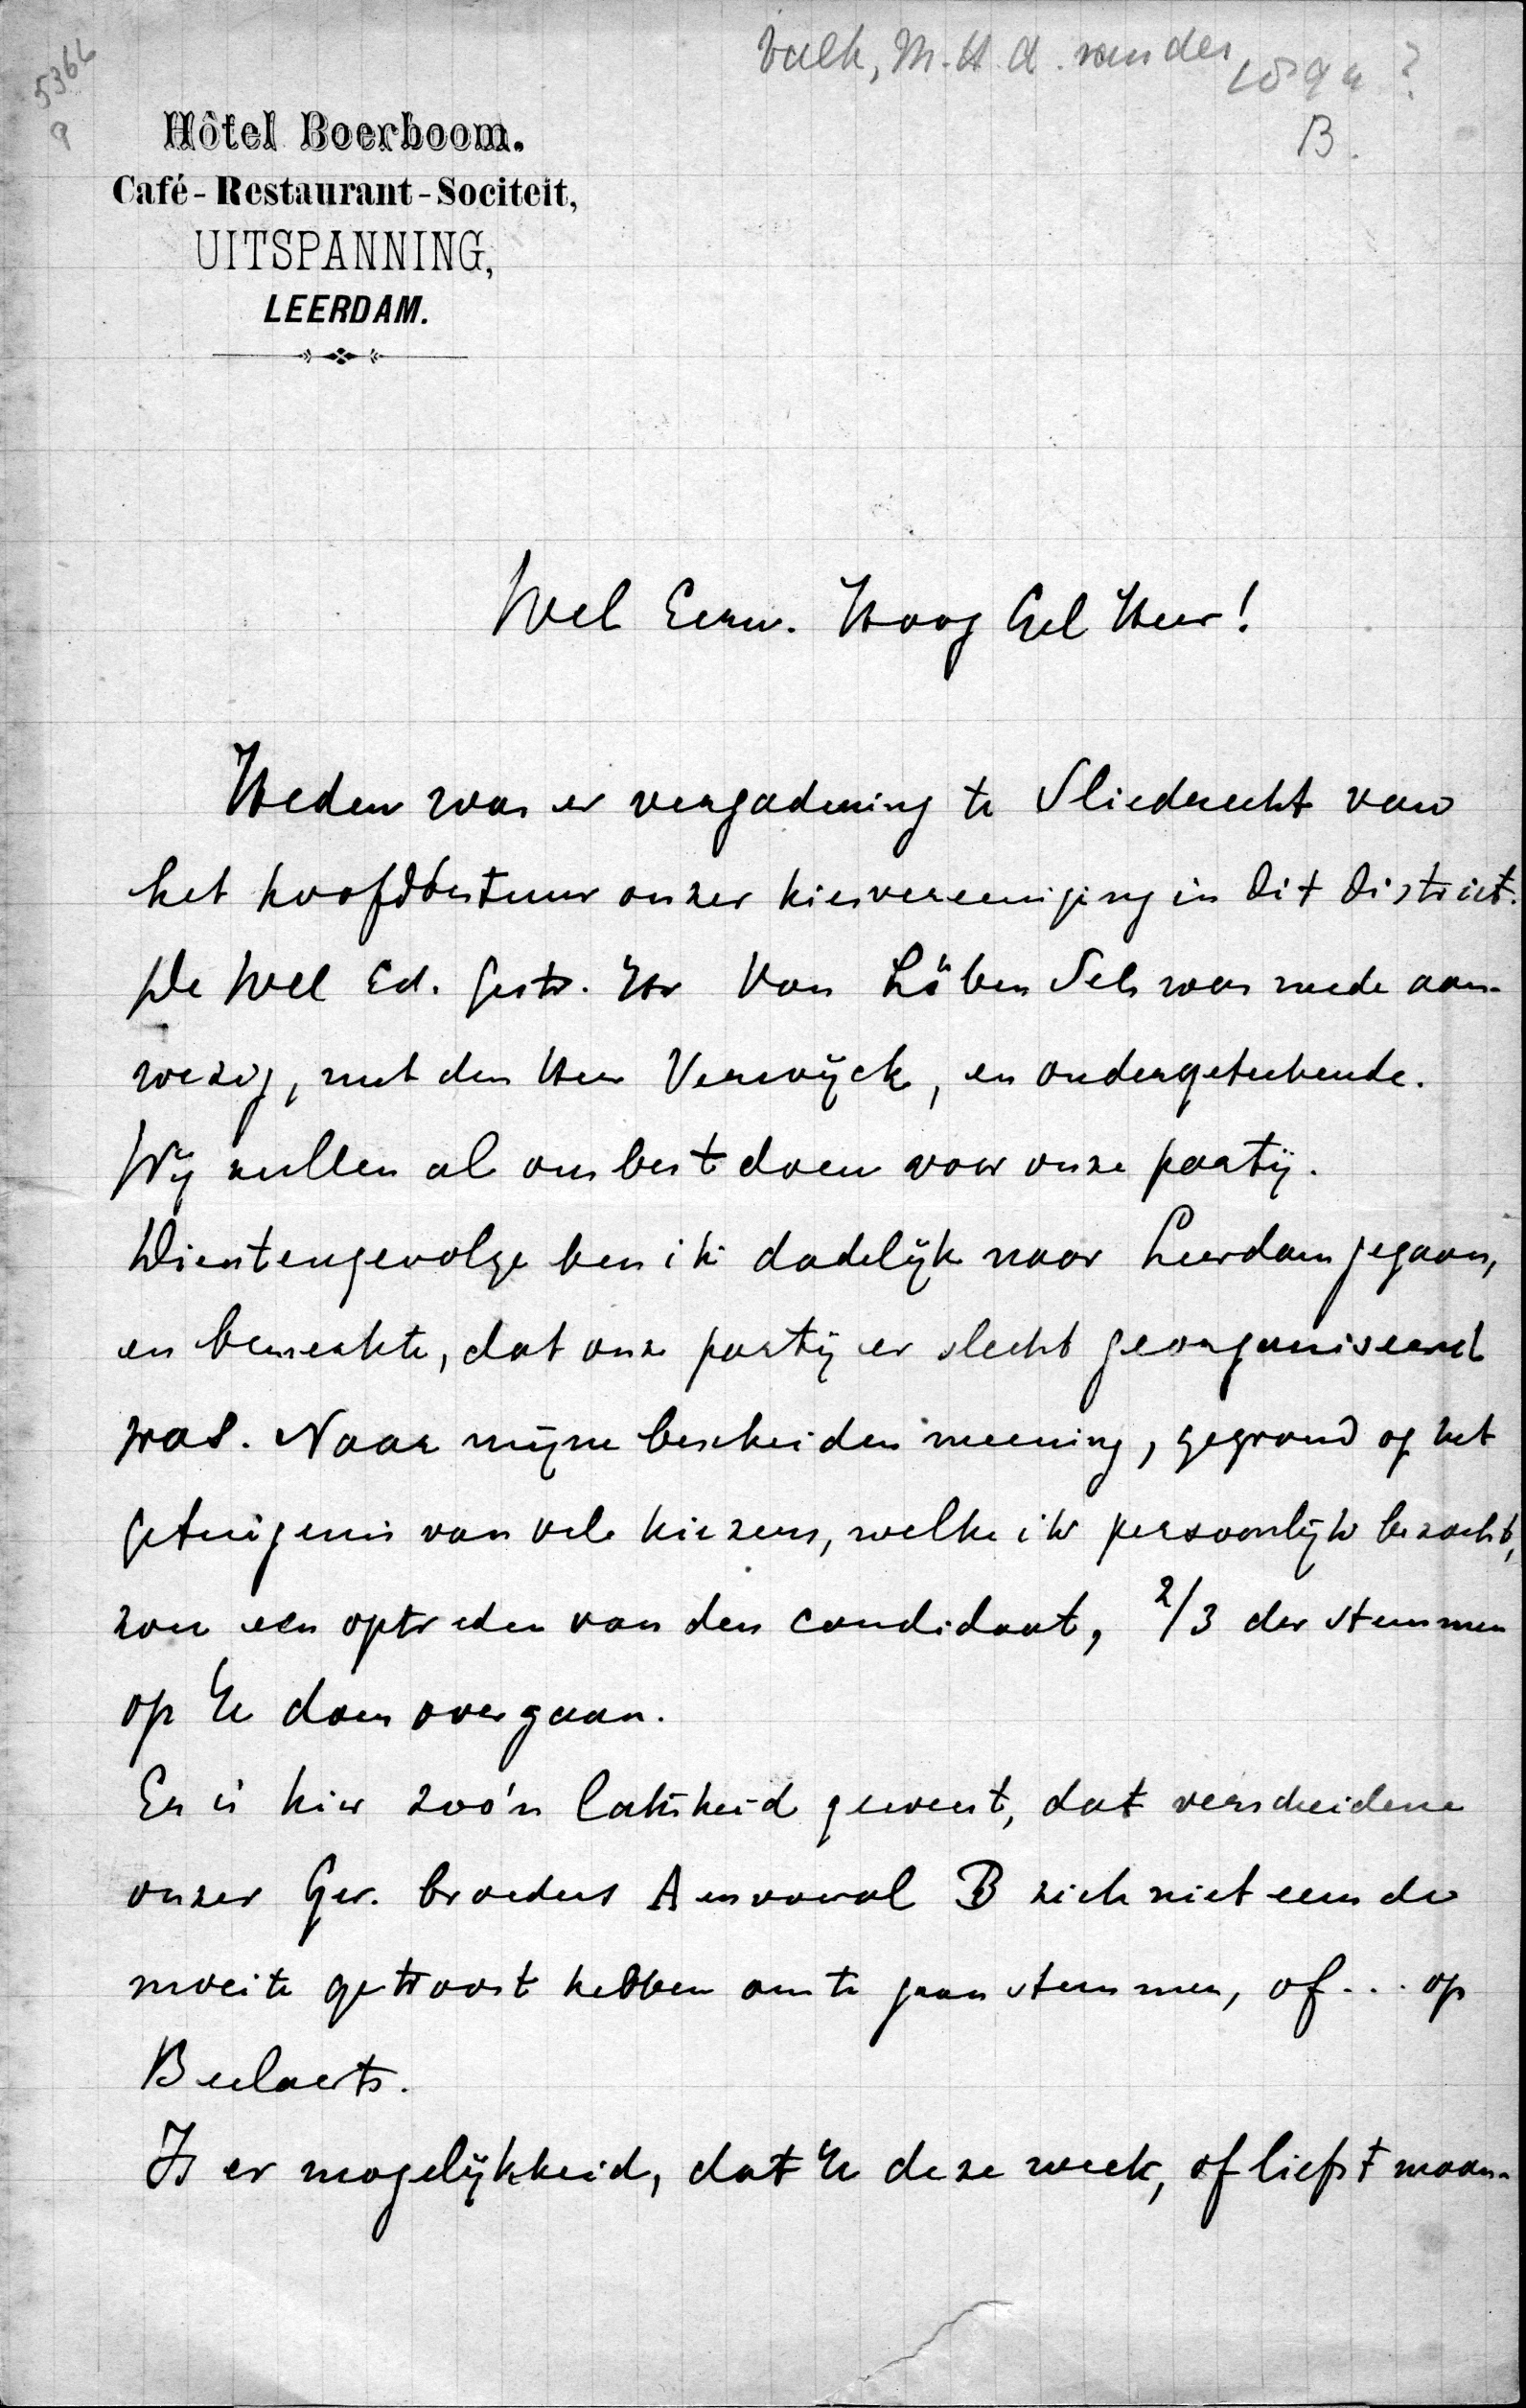 5366
a
Valk, M.H.A. van der
1894?
B.
Hôtel Boerboom.
Café-Restaurant-Sociteit,
UITSPANNING,
LEERDAM.
Wel Eerw. Hoog Gel Heer!
Heden was er vergadering te Sliedrecht van
het hoofdbestuur onzer kiesvereeniging in dit district.
De Wel Ed. Gestr. Hr Van Löben Sels was mede aan-
wezig, met den Heer Verwijck, en ondergeteekende.
Wij zullen al ons best doen voor onze partij.
Dientengevolge ben ik dadelijk naar Leerdam gegaan,
en bemerkte, dat onze partij er slecht georganiseerd
was. Naar mijne bescheiden meening, gegrond op het
getuigenis van vele kiezers, welke ik persoonlijk bezocht,
zou een optreden van den candidaat, 2/3 der stemmen
op U doen overgaan.
Er is hier zoo'n laksheid geweest, dat verscheidene
onzer Ger. broeders A en vooral B zich niet eens de
moeite getroost hebben om te gaan stemmen, of... op
Beelaerts.
Is er mogelijkheid, dat U deze week, of liefst maan-